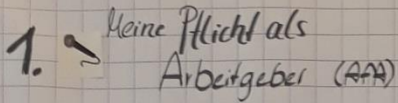 1. Meine Pflicht als
Arbeitgeber (AfA)